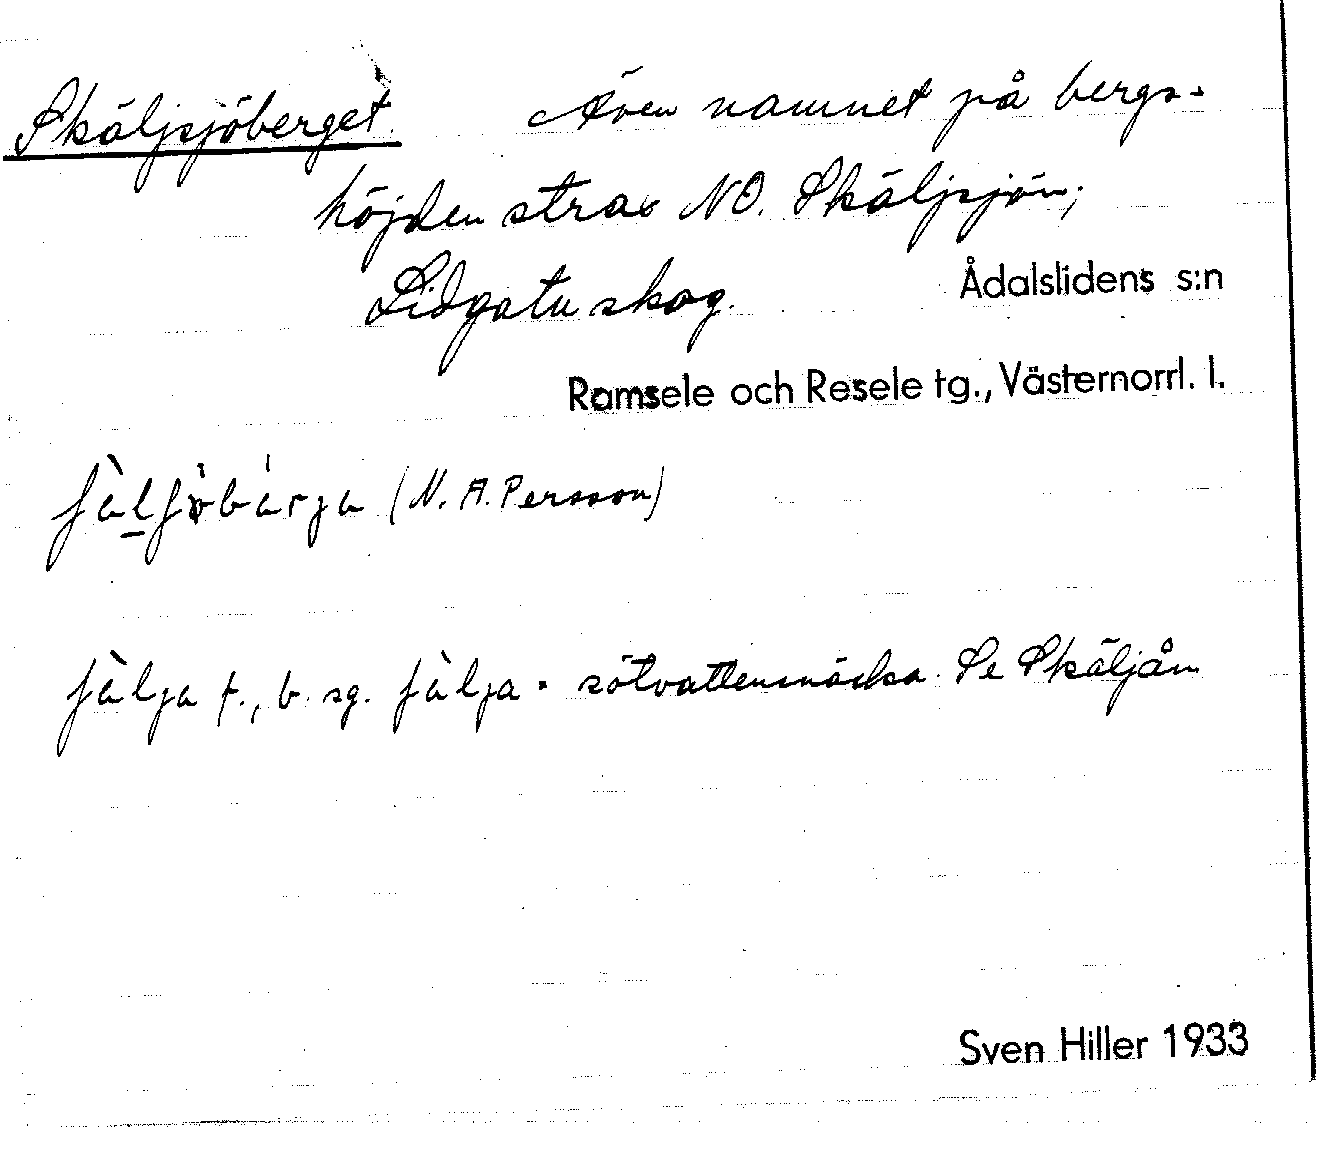 Skäljsjöberget. Även namnet på bergs-
höjden strax NO. Skäljsjön;
Lidgatu skog. Ådalslidens s:n
Ramsele och Resele tg., Västernorrl. l.
(N. A. Persson)
f., b. sg. = sötvattensnäcka. Se Skäljån
Sven Hiller 1933